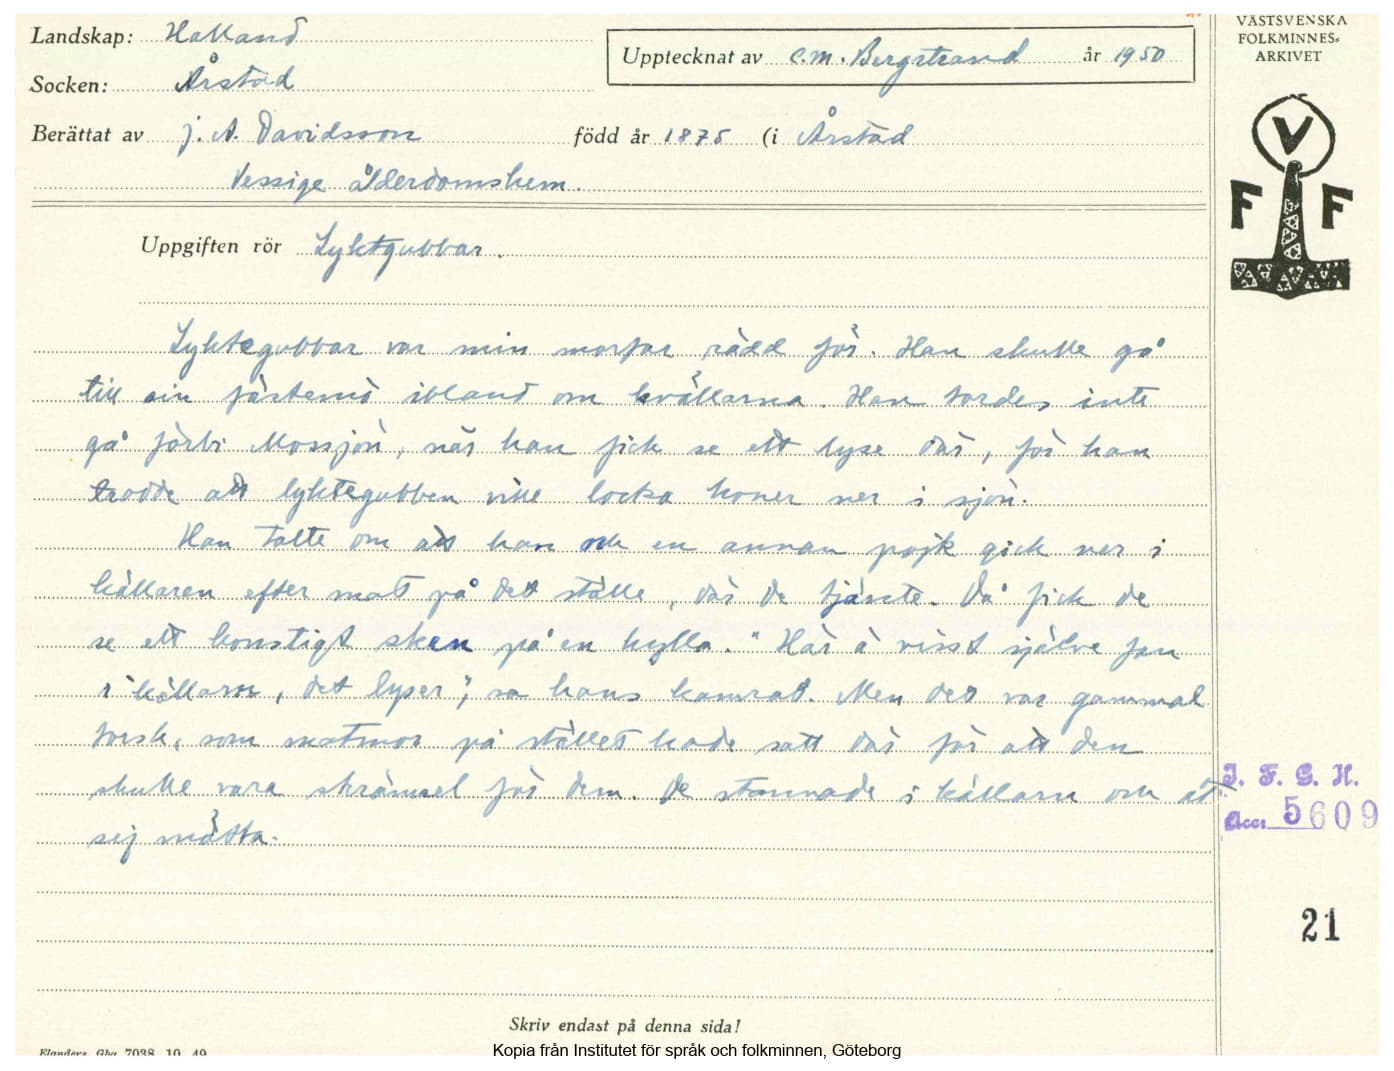 Landskap: Halland
Socken: Årstad
Upptecknat av C. M. Bergstrand år 1950
VÄSTSVENSKA
FOLKMINNES-
ARKIVET
Berättat av J. A. Davidsson född år 1875 (i Årstad
Vessige ålderdomshem.
V
F F
Uppgiften rör Lyktgubbar.
Lyktegubbar var min morfar rädd för. Han skulle gå
till sin fästemö ibland om kvällarna. Han tordes inte
gå förbi Mossjön, när han fick se ett lyse där, för han
trodde att lyktegubben ville locka honer ner i sjön.
Han talte om att han och en annan pojk gick ner i
källaren efter mat på det ställe, där de tjänte. Då fick de
se ett konstigt sken på en hylla. "Här ä visst själve fan
i källarn, det lyser", sa hans kamrat. Men det var gammal
torsk, som matmor på stället hade satt där för att den
skulle vara skrämsel för dem. De stannade i källarn och åt
sej mätta.
I. F. G. H.
Acc: 5609
21
Skriv endast på denna sida!
Flanders Gbg 7038 10 49
Kopia från Institutet för språk och folkminnen, Göteborg